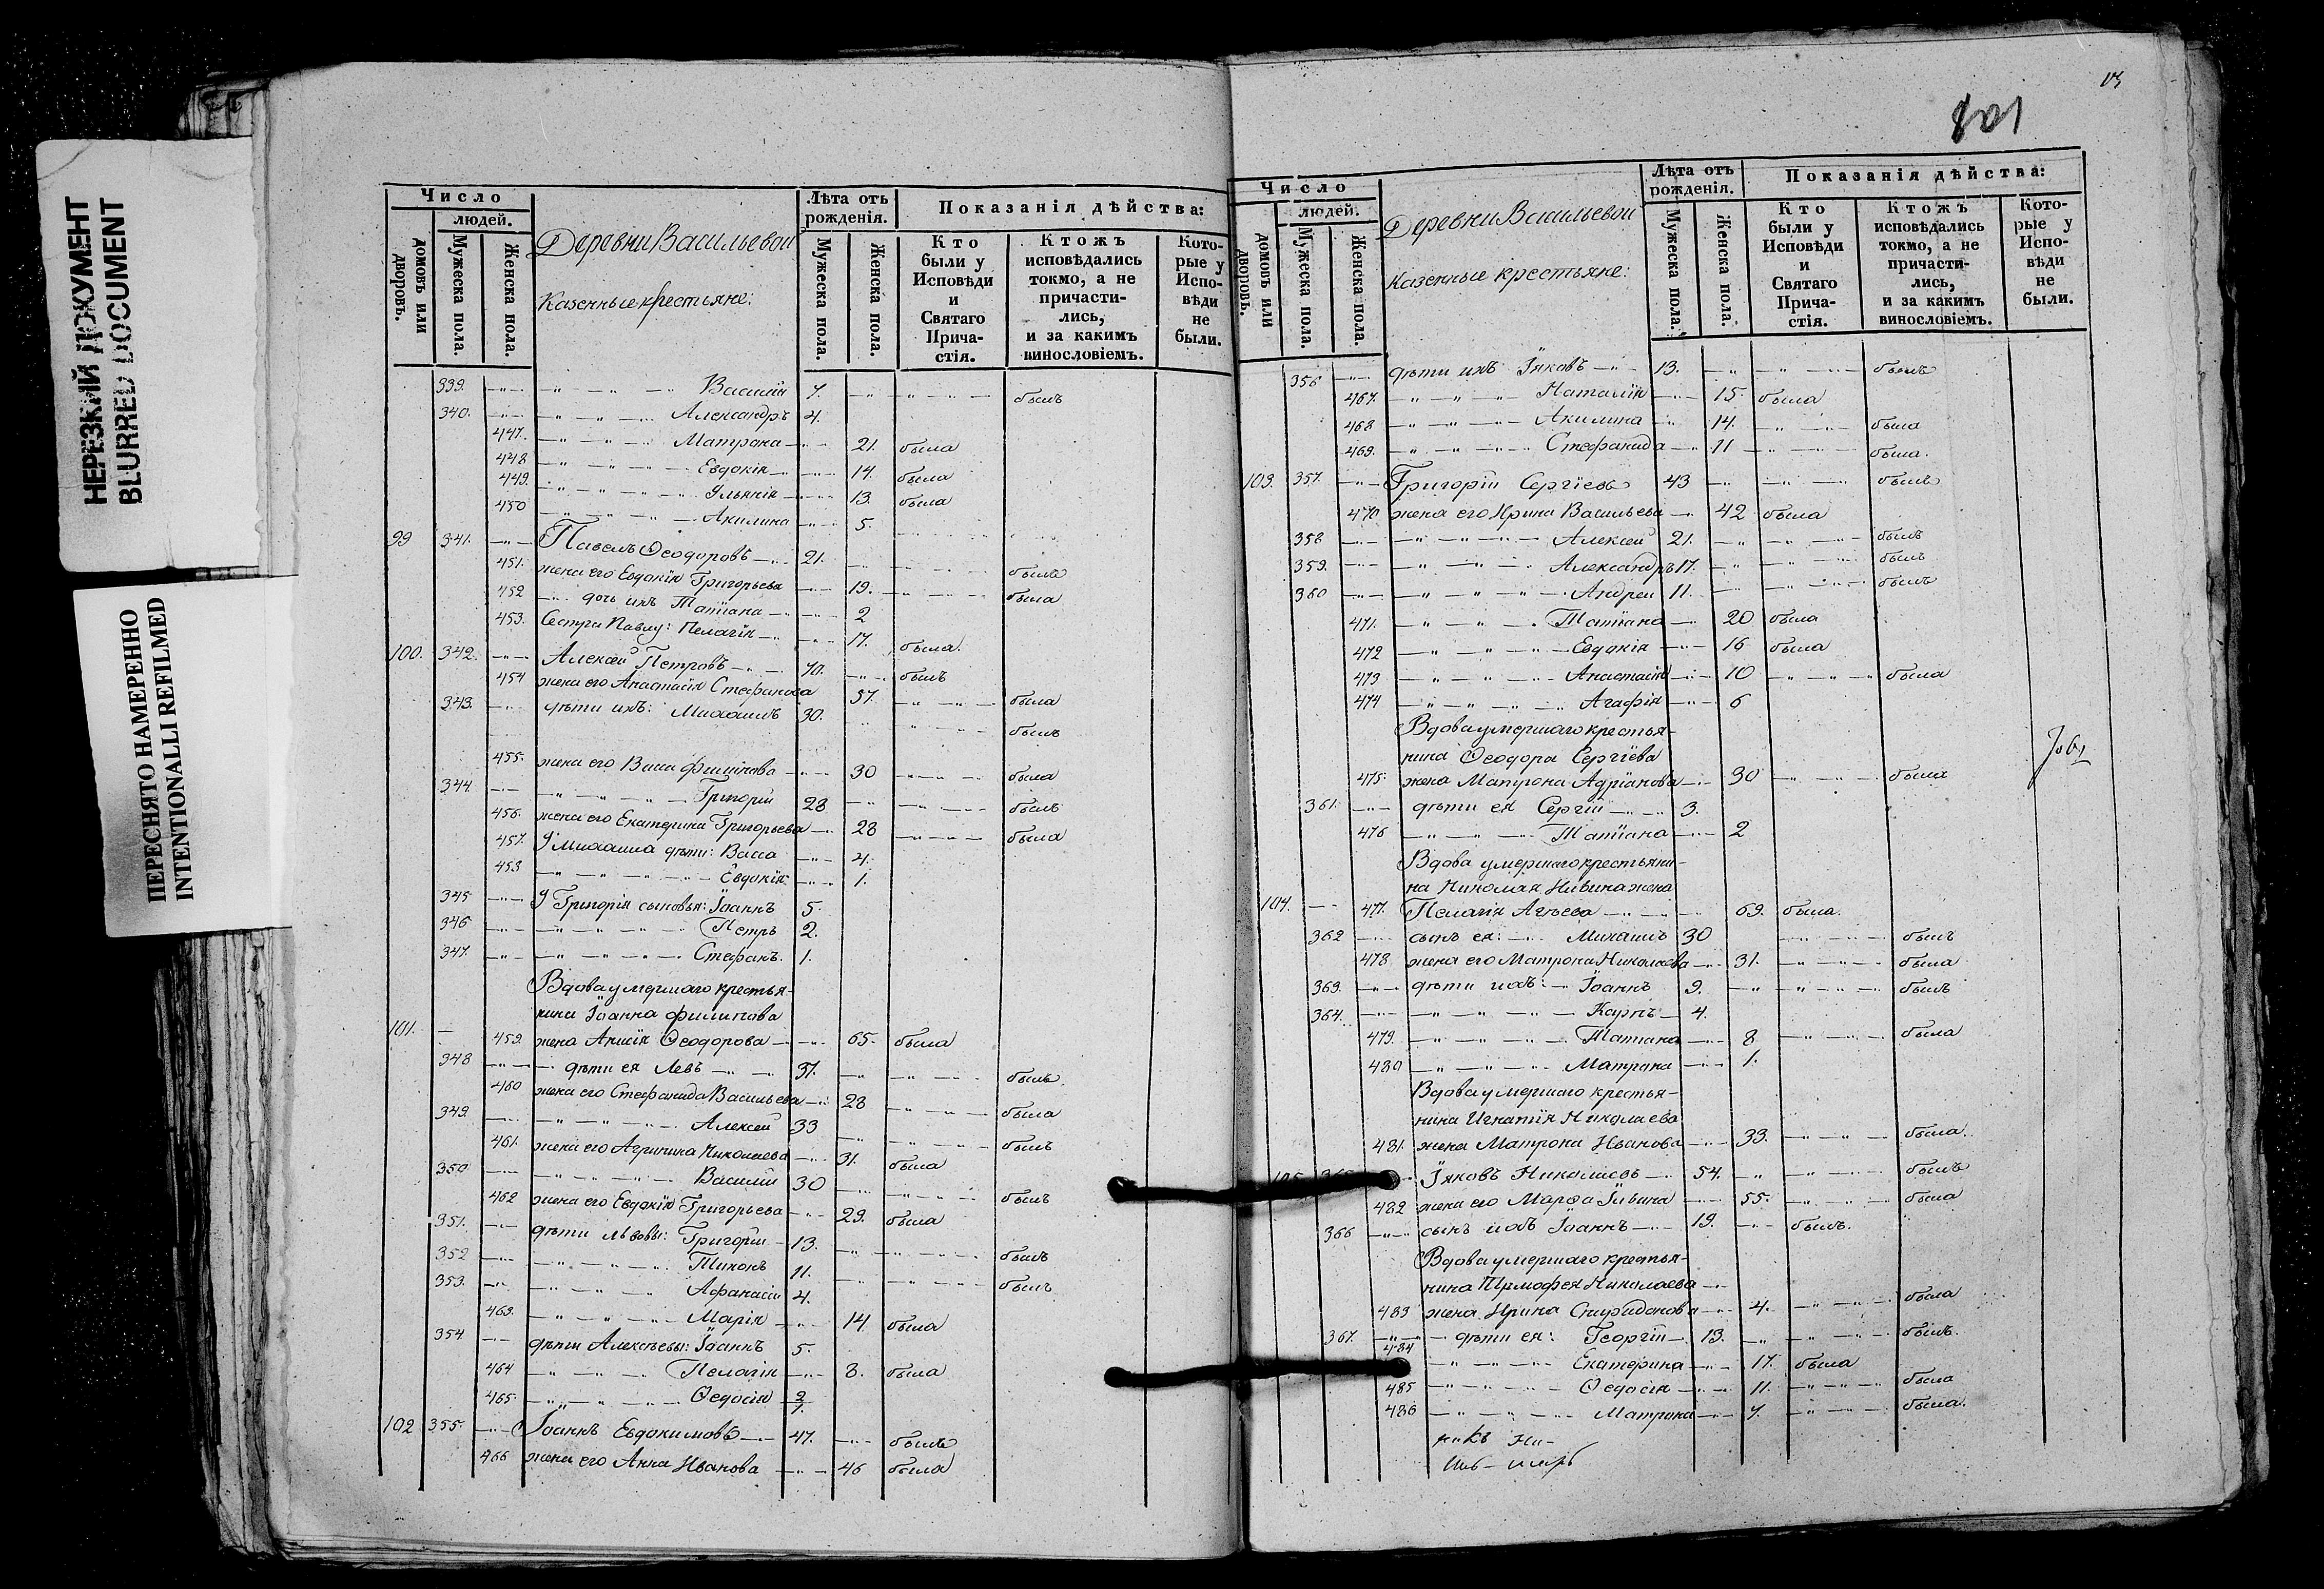 НЕРЕЗКИЙ ДОКУМЕНТ
BLURRED DOCUMENT
ПЕРЕСНЯТО НАМЕРЕННО
INTENTIONALLI REFILMED
Число
людей.
домовъ или дворовъ.
Мужеска пола.
Женска пола.
Деревни Васильевой
Казенные крестьяне:
Лѣта отъ рожденія.
Мужеска пола.
Женска пола.
Показанія дѣйства:
Кто были у Исповѣди и Святаго Прича-стія.
Ктожъ исповѣдались токмо, а не причасти-лись, и за какимъ винословіемъ.
Кото-рые у Испо-вѣди не были.
339. Василій 7. былъ
340. Александръ 4.
447. Матрона 21. была
448 Евдокія 14. была
449. Ульянія 13. была
450 Акилина 5.
99 341. Павелъ Ѳеодоровъ 21. былъ
451. жена его Евдокія Григорьева 19. была
452 дочь ихъ Татіана 2
453. Сестра Павлу: Пелагія 17. была.
100. 342. Алексей Петровъ 70. былъ
454 жена его Анастасія Стефанова 57. была
343. дѣти ихъ: Михаилъ 30. былъ
455. жена его Васса Филипова 30 была
344. Григорій 28 былъ
456. жена его Екатерина Григорьева 28 была
457. У Михаила дѣти: Васса 4.
458 Евдокія 1.
345 У Григорія сыновья: Іоаннъ 5.
346 Петръ 2.
347. Стефанъ. 1.
Вдова умершаго крестья-
нина Іоанна Филипова
101. 459. жена Анисія Ѳеодорова 65. была
348 дѣти ея Левъ 37. былъ
460 жена его Стефанида Васильева 28 была
349. Алексей 33 былъ
461. жена его Агрипина Николаева 31. была
350 Василій 30 былъ
462 жена его Евдокія Григорьева 29. была
351. дѣти львовы: Григорій 13. былъ
352 Тихонъ 11. былъ
353. Афанасій 4.
463. Марія 14 была
354 дѣти Алексѣевы: Іоаннъ 5.
464 Пелагія 8. была
465. Ѳедосія
102 355. Іоаннъ Евдокимовъ 47. былъ
466 жена его Анна Иванова 46 была
801
Число
людей.
домовъ или дворовъ.
Мужеска пола.
Женска пола.
Деревни Васильевой
Казенные крестьяне:
Лѣта отъ рожденія.
Мужеска пола.
Женска пола.
Показанія дѣйства:
Кто были у Исповѣди и Святаго Прича-стія.
Ктожъ исповѣдались токмо, а не причасти-лись, и за какимъ винословіемъ.
Кото-рые у Испо-вѣди не были.
356 дѣти ихъ Іяковъ 13. былъ
467. Наталія 15. была
468 Акилина 14. была
469. Стефанида 11 была.
103. 357. Григорій Сергіевъ 43 былъ
470 жена его Ирина Васильева 42 была
358 Алексей 21. былъ
359. Александръ 17. былъ
360 Андрей 11. былъ
471. Татіана 20 была
472 Евдокія 16 была
473 Анастасія 10 была
474 Агафія 6
Вдова умершаго крестья-
нина Ѳеодора Сергіева
475. жена Матрона Адріанова 30 была
361. дѣти ея Сергій 3.
476 Татіана 2
Вдова умершаго крестьяни-
на Николая Ивина жена
104. 477. Пелагія Агѣева 69. была.
362 сынъ ея: Михаилъ 30 былъ
478 жена его Матрона Николаева 31. была
363. дѣти ихъ: Іоаннъ 9. былъ
364. Карпъ 4.
479. Татіана 8 была
480 Матрона 1.
Вдова умершаго крестья-
нина Игнатія Николаева
481. жена Матрона Иванова 33. была
105. 365. Іяковъ Николаевъ 54. былъ
482 жена его Марѳа Ільина 55. была
366 сынъ ихъ Іоаннъ 19. былъ.
Вдова умершаго крестья-
нина Тимофея Николаева
483 жена Ирина Спиридонова 4. была
367. дѣти ея: Георгій 13. былъ.
484 Екатерина 17. была
485 Ѳедосія 11. была
486 Матрона 7. была.